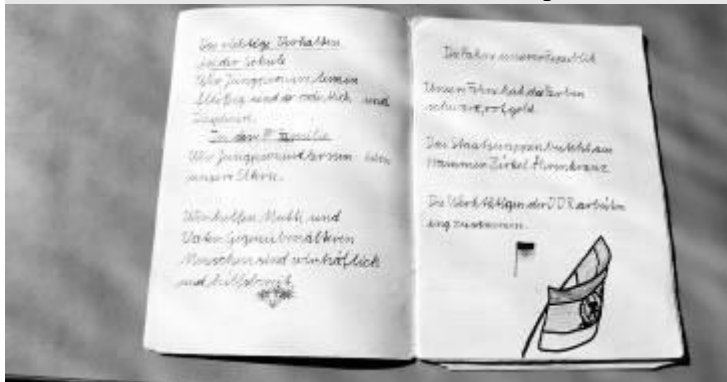 Das richtige Verhalten
in der Schule
Wir Jungpioniere lernen
fleißig sind ordentlich und
In der Familie
Wir Jungpioniere lieben
unsere Eltern.
Wir helfen Mutti und
Vater. Gegenüber älteren
Menschen sind wir höflich
und hilfsbereit
Die Fahne unserer Republik
Unsere Fahne hat die Farben
schwarz, rot, gold.
Das Staatswappen besteht aus
Hammer Zirkel Ährenkranz
Die Werktätigen der DDR arbeiten
eng zusammen.